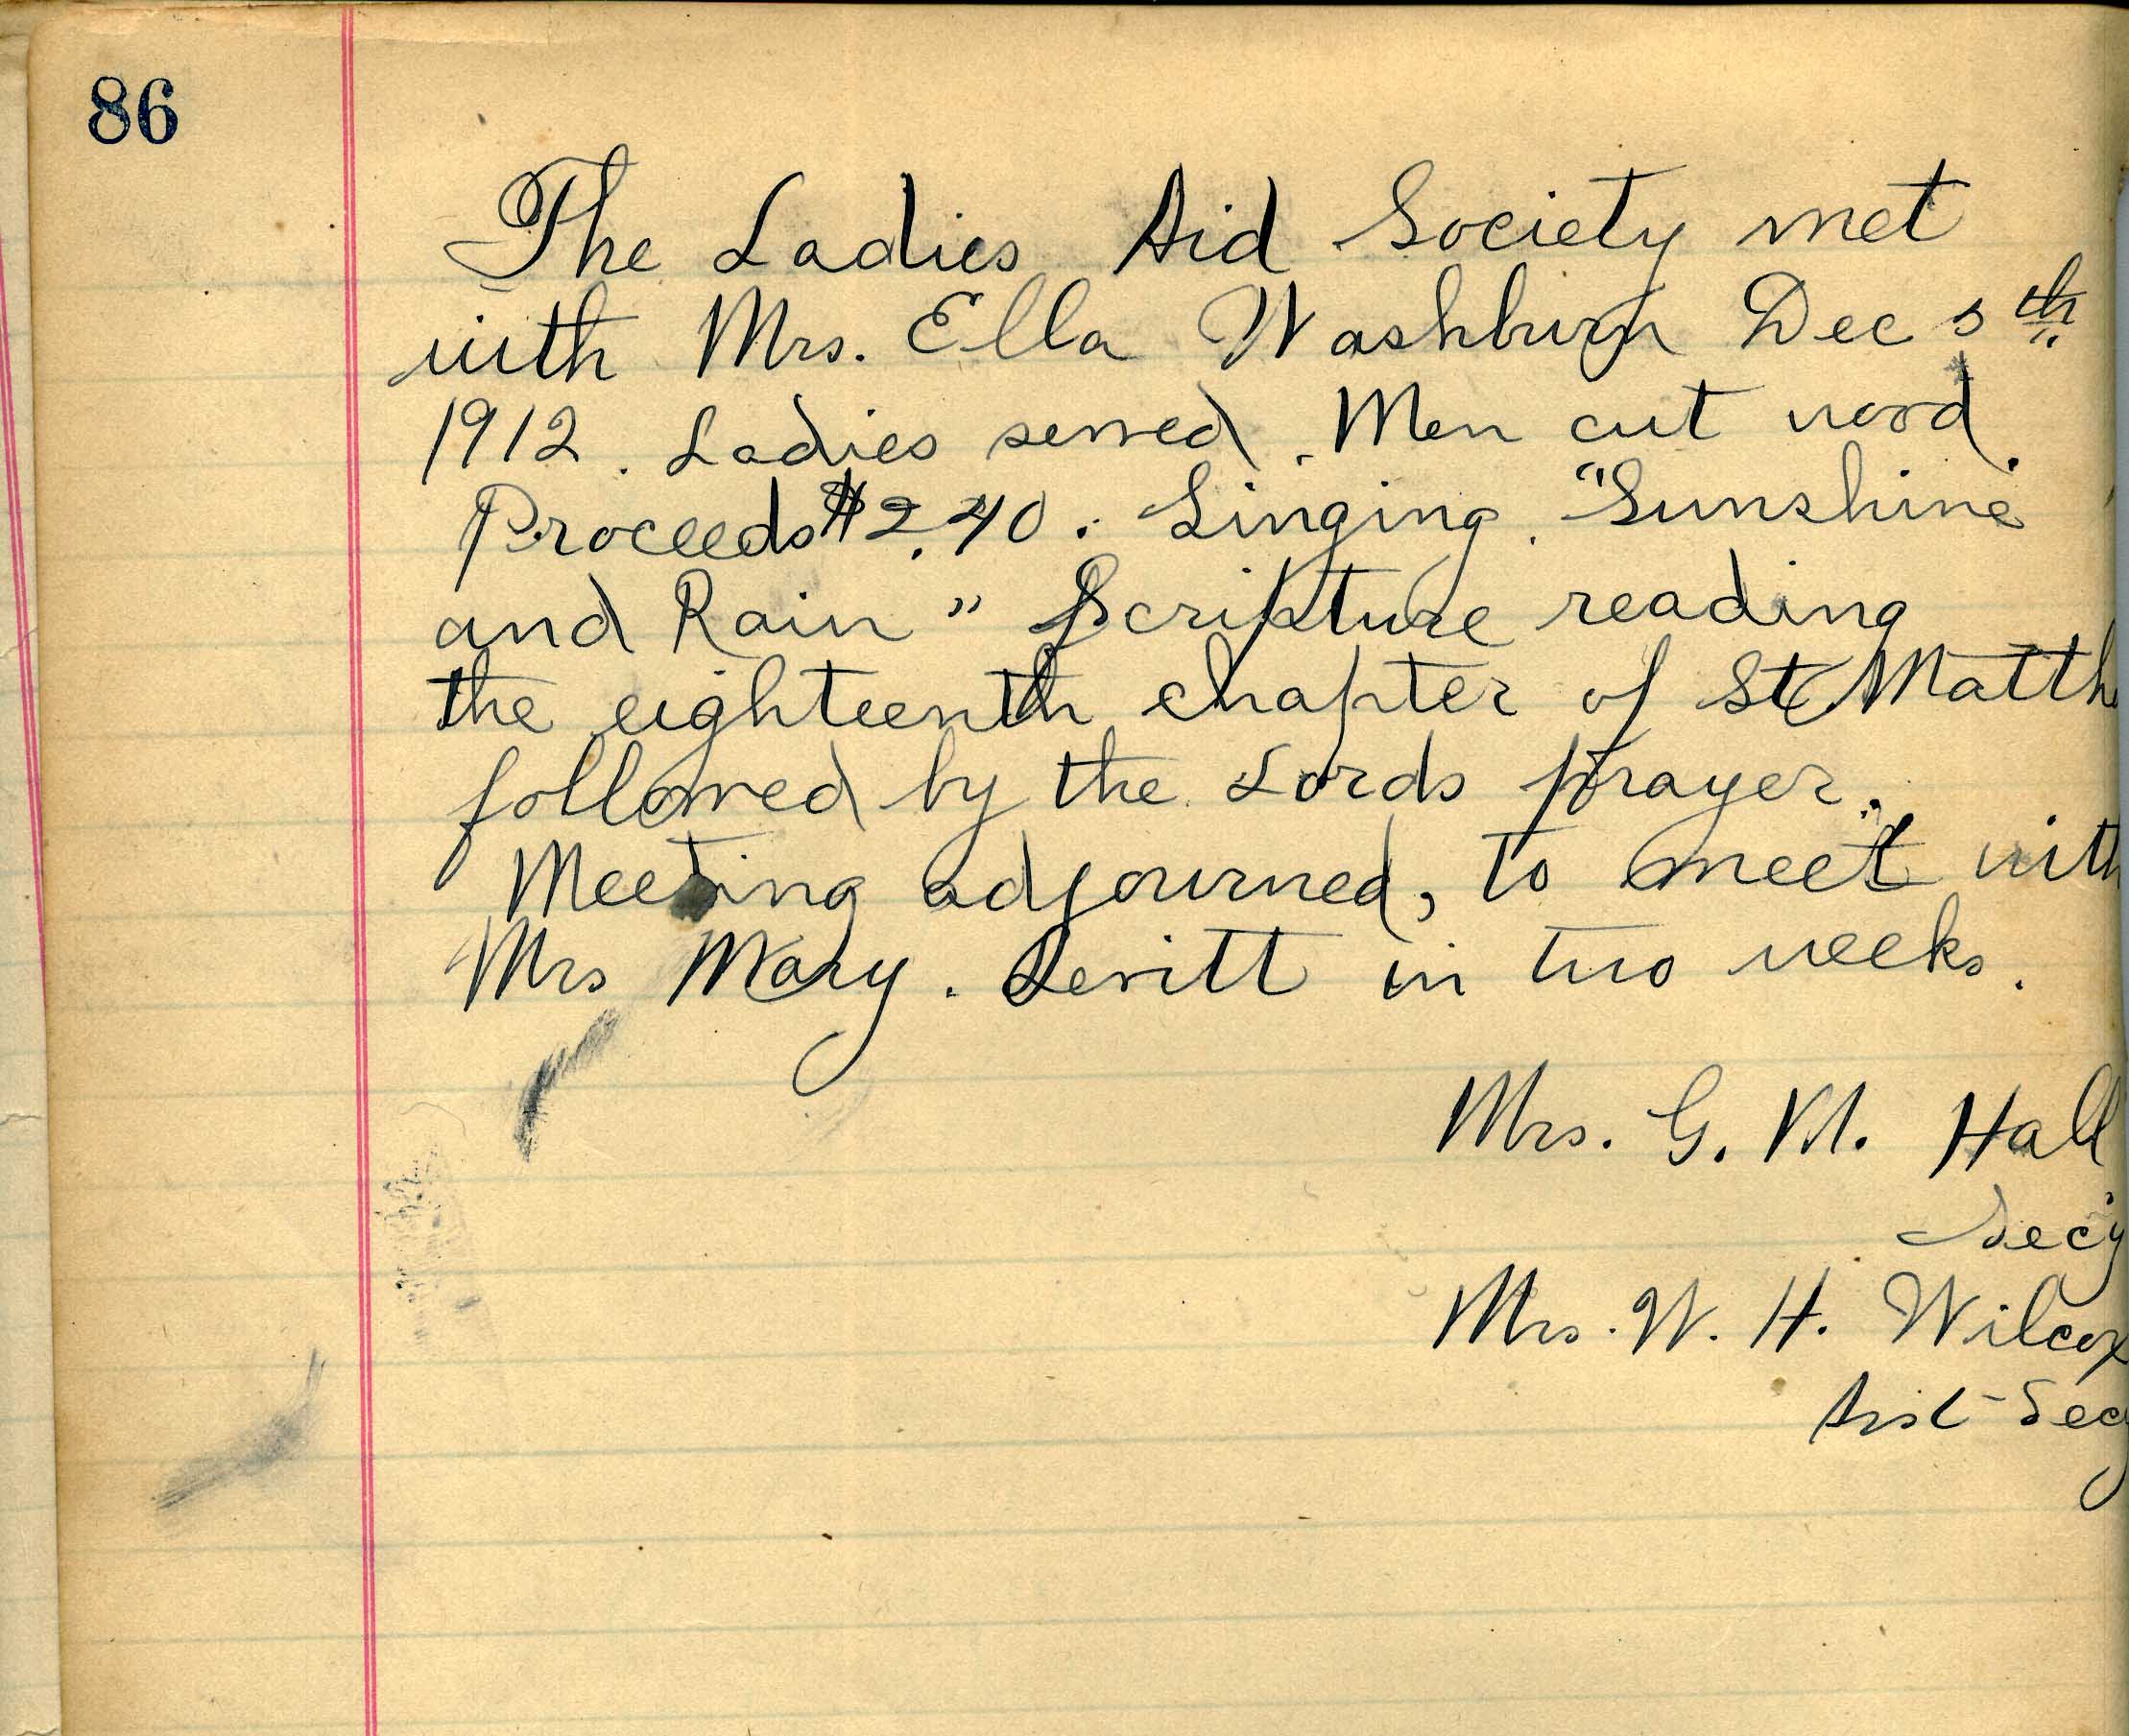 86
The Ladies Aid Society met
with Mrs. Ella Washburn Dec 5th
1912. Ladies served. Men cut wood.
Proceeds $2.40. Singing. "Sunshine
and Rain" Scripture reading
the eighteenth chapter of St Matth
followed by the Lords prayer.
Meeting adjourned, to meet with
Mrs Mary. Levitt in two weeks.
Mrs. G. M. Hall
Sec'y
Mrs. W. H. Wilcox
Asst-Secy